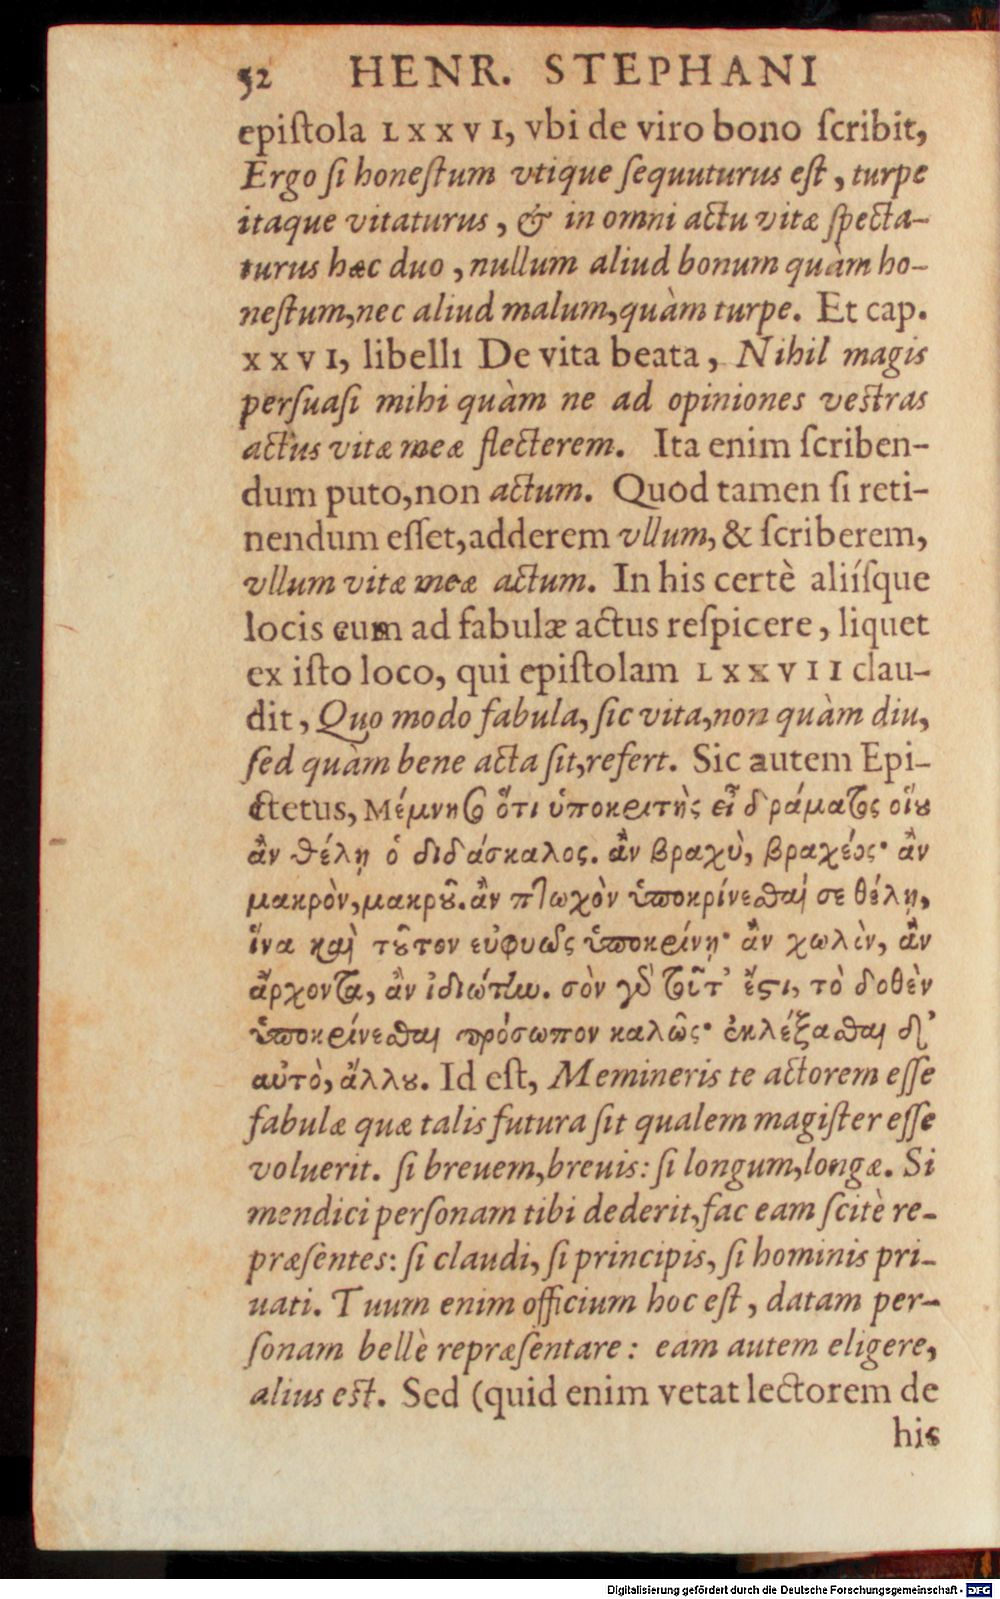 52 HENR. STEPHANI
epiſtola LXXVI, vbi de viro bono ſcribit,
Ergo ſi honeſtum vtique ſequuturus eſt, turpe
itaque vitaturus, & in omni actu vitæ ſpecta-
turus hæc duo, nullum aliud bonum quàm ho-
neſtum, nec aliud malum, quàm turpe. Et cap.
XXVI, libelli De vita beata, Nihil magis
perſuaſi mihi quàm ne ad opiniones veſtras
actus vitæ meæ flecterem. Ita enim ſcriben-
dum puto, non actum. Quod tamen ſi reti-
nendum eſſet, adderem vllum, & ſcriberem,
vllum vitæ meæ actum. In his certè aliíſque
locis eum ad fabulæ actus reſpicere, liquet
ex iſto loco, qui epiſtolam LXXVII clau-
dit, Quo modo fabula, ſic vita, non quàm diu,
ſed quàm bene acta ſit, refert. Sic autem Epi-
ctetus, Μέμνησο ὅτι ὑποκριτὴς εἶ δράματος οἵου
ἂν θέλῃ ὁ διδάσκαλος. ἂν βραχὺ, βραχέος· ἂν
μακρὸν, μακροῦ. ἂν πτωχὸν ὑποκρίνεσθαί σε θέλῃ,
ἵνα καὶ τοῦτον εὐφυῶς ὑποκρίνῃ· ἂν χωλὸν, ἂν
ἄρχοντα, ἂν ἰδιώτην. σὸν γὰρ τοῦτ' ἔστι, τὸ δοθὲν
ὑποκρίνεσθαι πρόσωπον καλῶς· ἐκλέξασθαι δ'
αὐτὸ, ἄλλου. Id eſt, Memineris te actorem eſſe
fabulæ quæ talis futura ſit qualem magiſter eſſe
voluerit. ſi breuem, breuis: ſi longum, longæ. Si
mendici perſonam tibi dederit, fac eam ſcitè re-
præſentes: ſi claudi, ſi principis, ſi hominis pri-
uati. Tuum enim officium hoc eſt, datam per-
ſonam bellè repræſentare: eam autem eligere,
alius eſt. Sed (quid enim vetat lectorem de
his
Digitalisierung gefördert durch die Deutsche Forschungsgemeinschaft - DFG